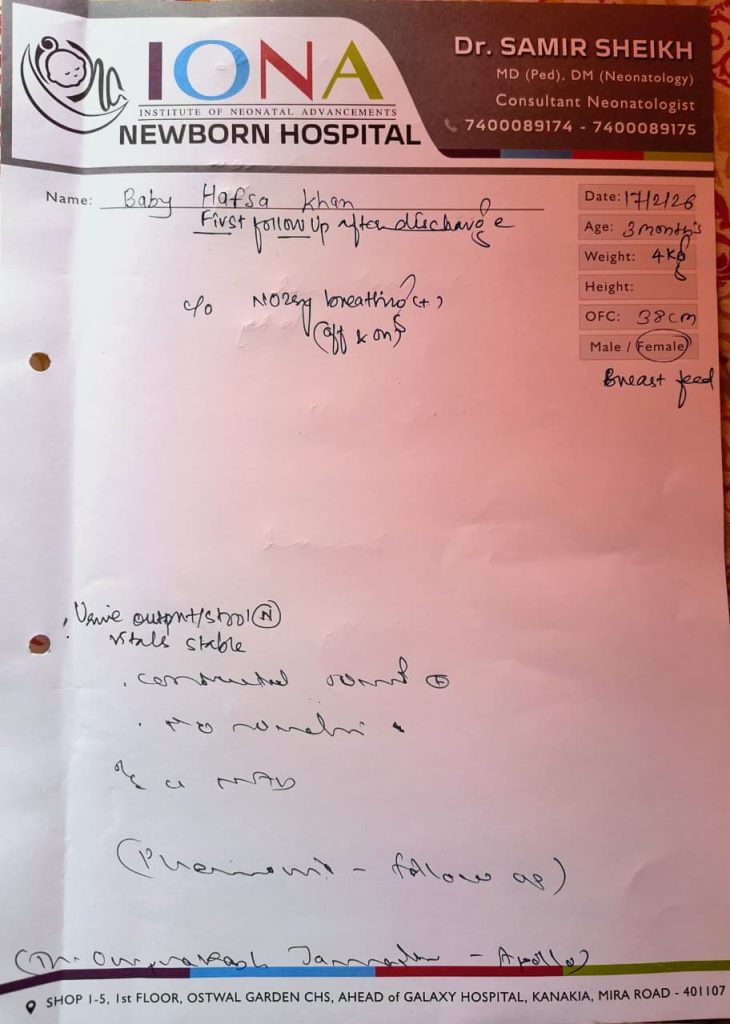 IONA
INSTITUTE OF NEONATAL ADVANCEMENTS
NEWBORN HOSPITAL
Dr. SAMIR SHEIKH
MD (Ped), DM (Neonatology)
Consultant Neonatologist
7400089174 - 7400089175
Name: Baby Hafsa Khan
First follow up after discharge
Date: 17/2/26
Age: 3 months
Weight: 4 kg
Height:
OFC: 38 cm
Male / Female
Breast feed
c/o breathing (+)
(off & on)
output/stool (N)
vitals stable
sound
NAD
( - follow up)
( - Apollo)
SHOP 1-5, 1st FLOOR, OSTWAL GARDEN CHS, AHEAD of GALAXY HOSPITAL, KANAKIA, MIRA ROAD - 401107